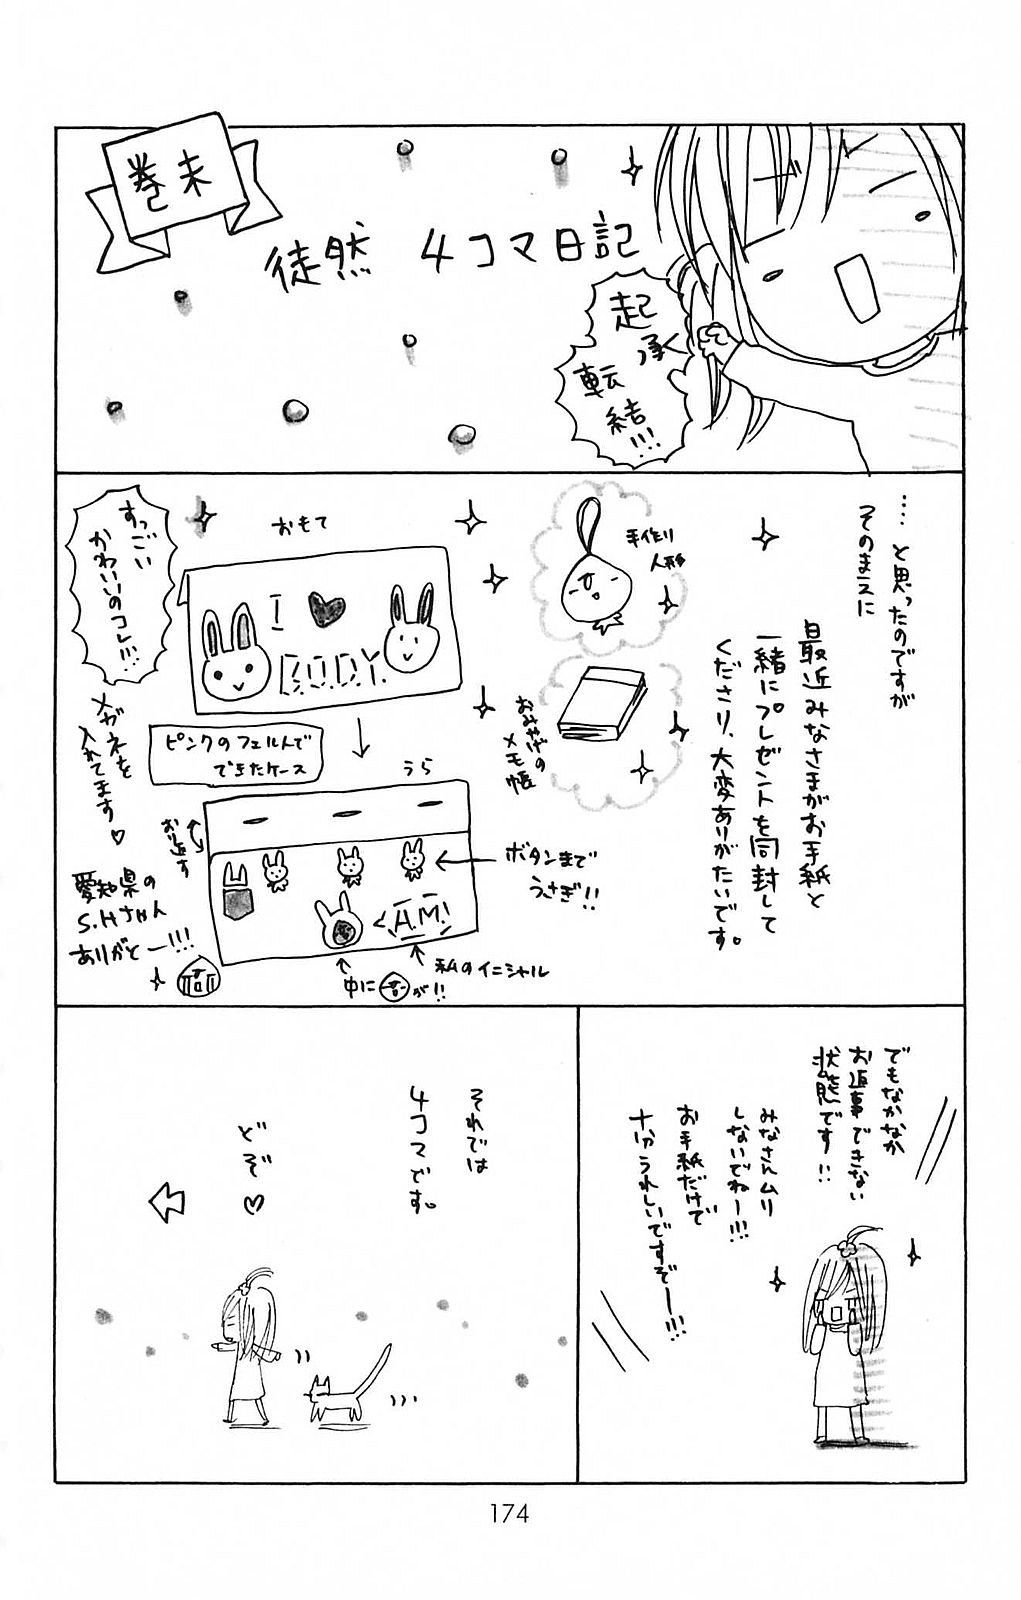 巻末
徒然 4コマ日記
起承
転
結!!!
‥‥と思ったのですが
そのまえに
最近みなさまがお手紙と
一緒にプレゼントを同封して
くださり、大変ありがたいです。
手作り
人形
おみやげの
メモ帳
おもて
I
B.U.D.Y.
すっごい
かわいいのコレ!!!
メガネを
入れてます♡
ピンクのフェルトで
できたケース
うら
おり返す
ボタンまで
うさぎ!!
A.M.!
私のイニシャル
中に
が!!
愛知県の
S.Hちゃん
ありがとー!!!
でもなかなか
お返事できない
状態です!!
みなさんムリ
しないでねー!!!
お手紙だけで
十分うれしいですぞー!!!
それでは
4コマです。
どぞ♡
174